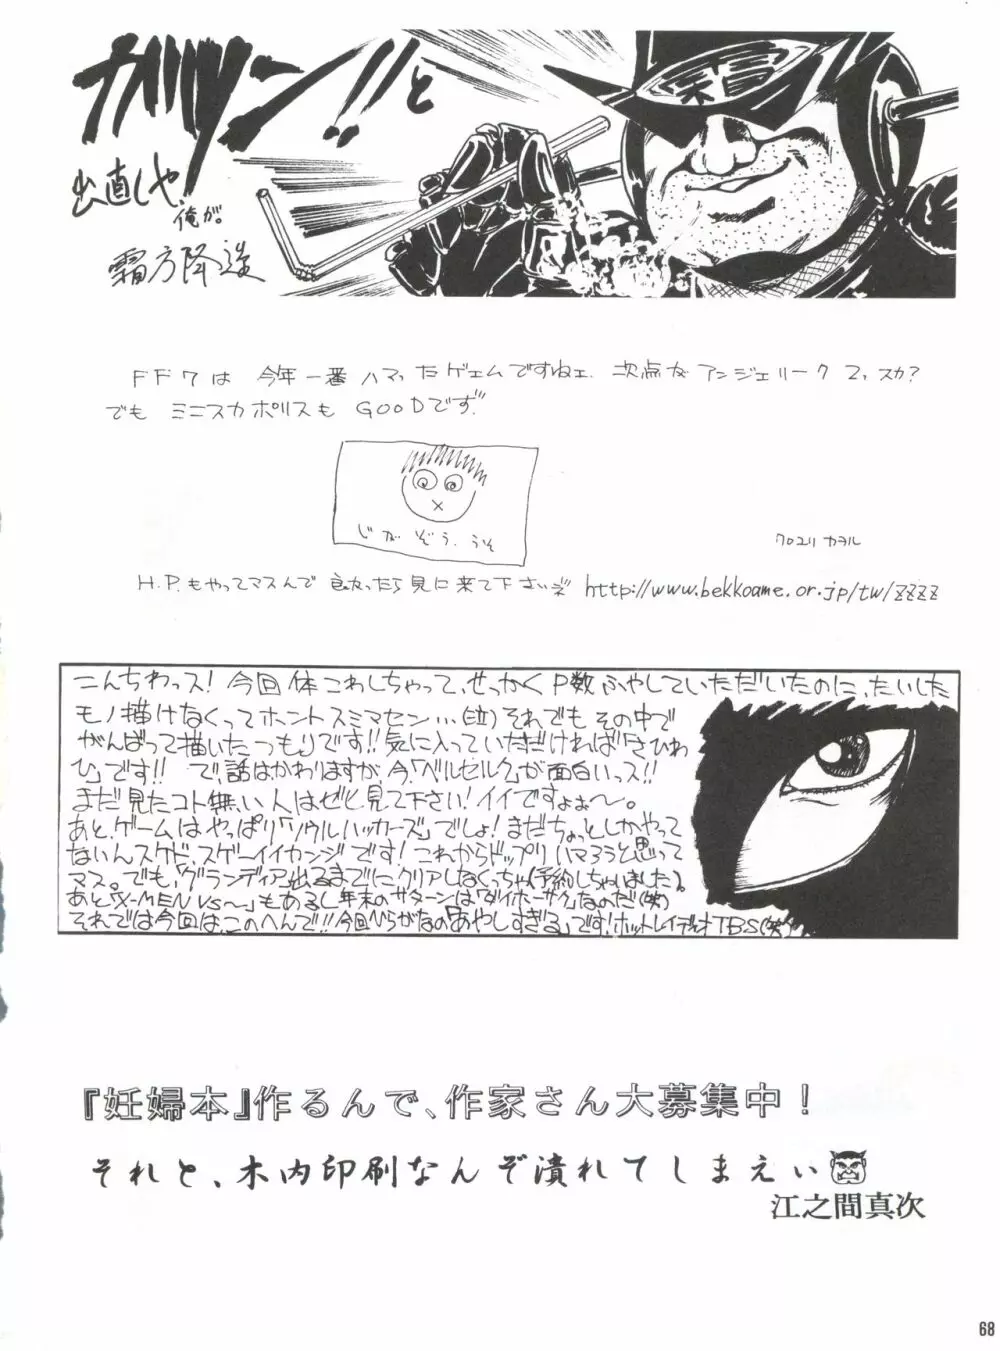 ガツン!!と
出直しや、
俺が。
霜方降造
FF7は 今年一番ハマったゲェムですねェ. 次点がアンジェリーク2っスカ?
でも ミニスカポリスも GOODです。
じがぞう.うそ
クロユリ カヲル
H.P.もやってマスんで 良かったら見に来て下さいぞ http://www.bekkoame.or.jp/tw/zzzz
こんちわっス! 今回体こわしちゃって、せっかくP数ふやしていただいたのに、たいした
モノ描けなくってホントスミマセン…(泣)それでもその中で
がんばって描いたつもりです!! 気に入っていただければ「さひわ
ひ」です!! で、話はかわりますが、今、「ベルセルク」が面白いっス!!
まだ見たコト無い人はぜヒ見て下さい! イイですよぉ〜。
あと、ゲームはやっぱり「ソウルハッカーズ」でしょ! まだちょっとしかやって
ないんスケド、スゲーイイカンジです! これからドップリハマろうと思って
マス。でも、「グランディア」出るまでにクリアしなくっちゃ(予約しちゃいました)。
あと「X-MEN VS〜」もあるし年末のサターンは「ダイホーサク」なのだ(笑)
それでは今回はこのへんで!! 今回ひらがなの「あやしすぎる」です! ホットレイディオTBS(笑)
『妊婦本』作るんで、作家さん大募集中!
それと、木内印刷なんぞ潰れてしまえぃ
江之間真次
68